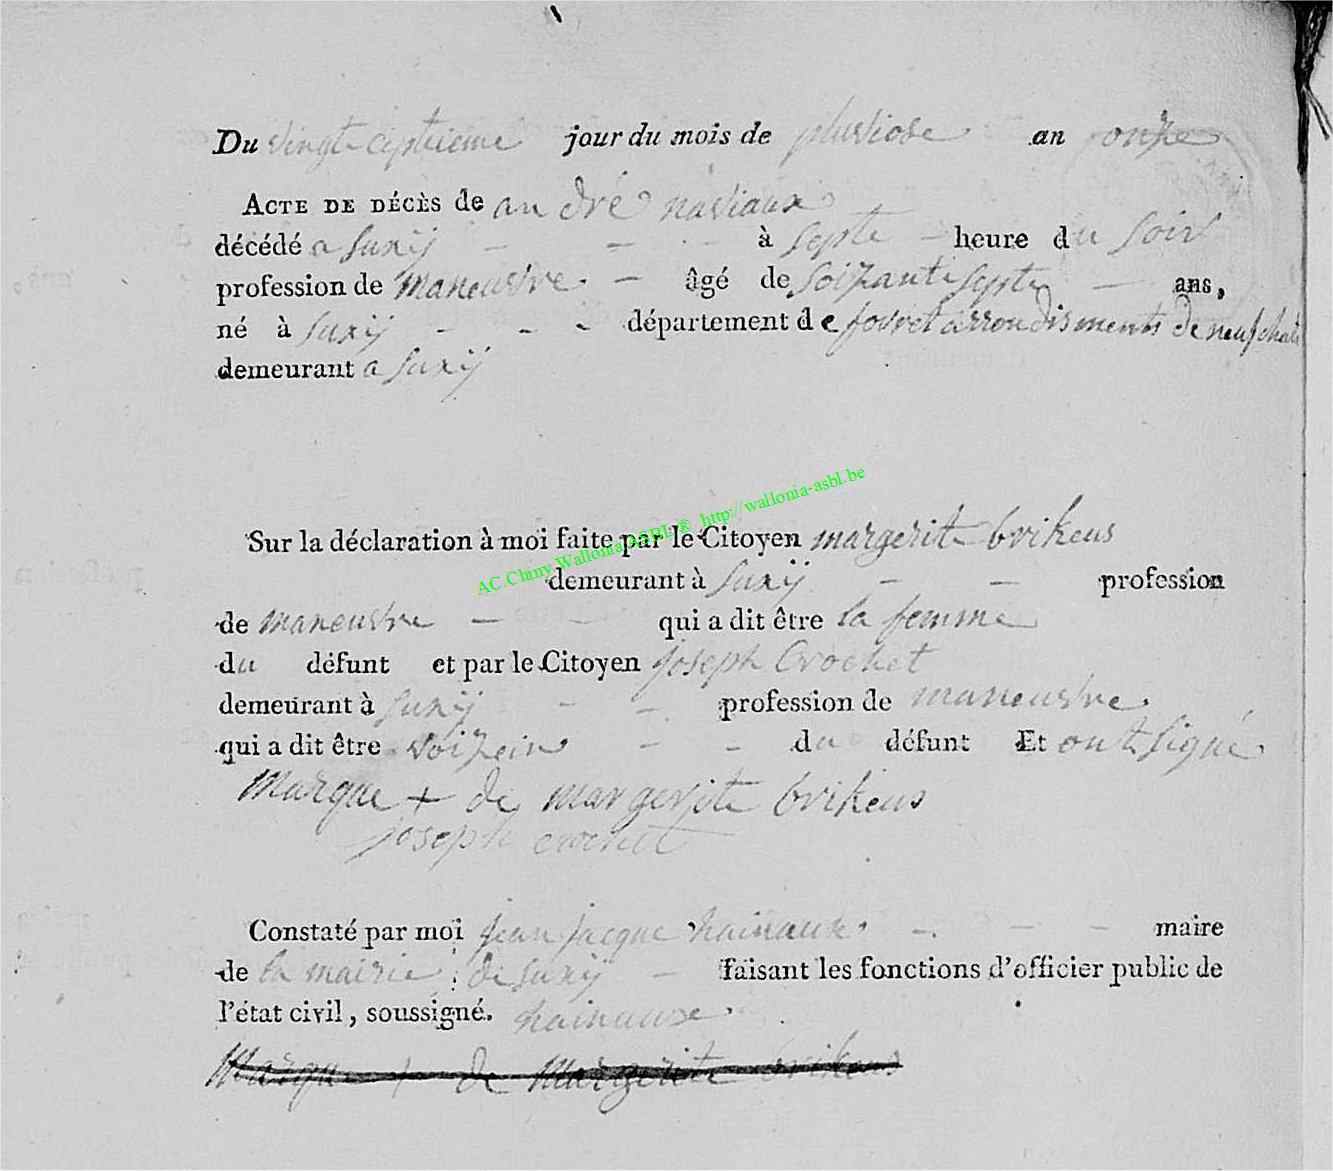 Du vingt ciptieme jour du mois de pluviose an onze
ACTE DE DÉCÈS de andré naviaux
décédé a Suxÿ - - - à septe - heure du soir
profession de maneuvre - âgé de soizante septe - ans,
né à Suxÿ - - - département de foiret arrondisments de neufchate
demeurant a Suxÿ
AC.Chiny Wallonia ASBL ® http://wallonia-asbl.be
Sur la déclaration à moi faite par le Citoyen margerite brikeus
demeurant à Suxÿ - - profession
de maneuvre - - qui a dit être la femme
du défunt et par le Citoyen joseph Crochet
demeurant à Suxÿ - - profession de maneuvre
qui a dit être voizein - - du défunt Et ont signé
Marque + de margerite brikeus
joseph crochet
Constaté par moi jean jacque hainaux - - - maire
de la mairie de Suxÿ - faisant les fonctions d'officier public de
l'état civil, soussigné. hainaux
Marque + de Margerite brikeus